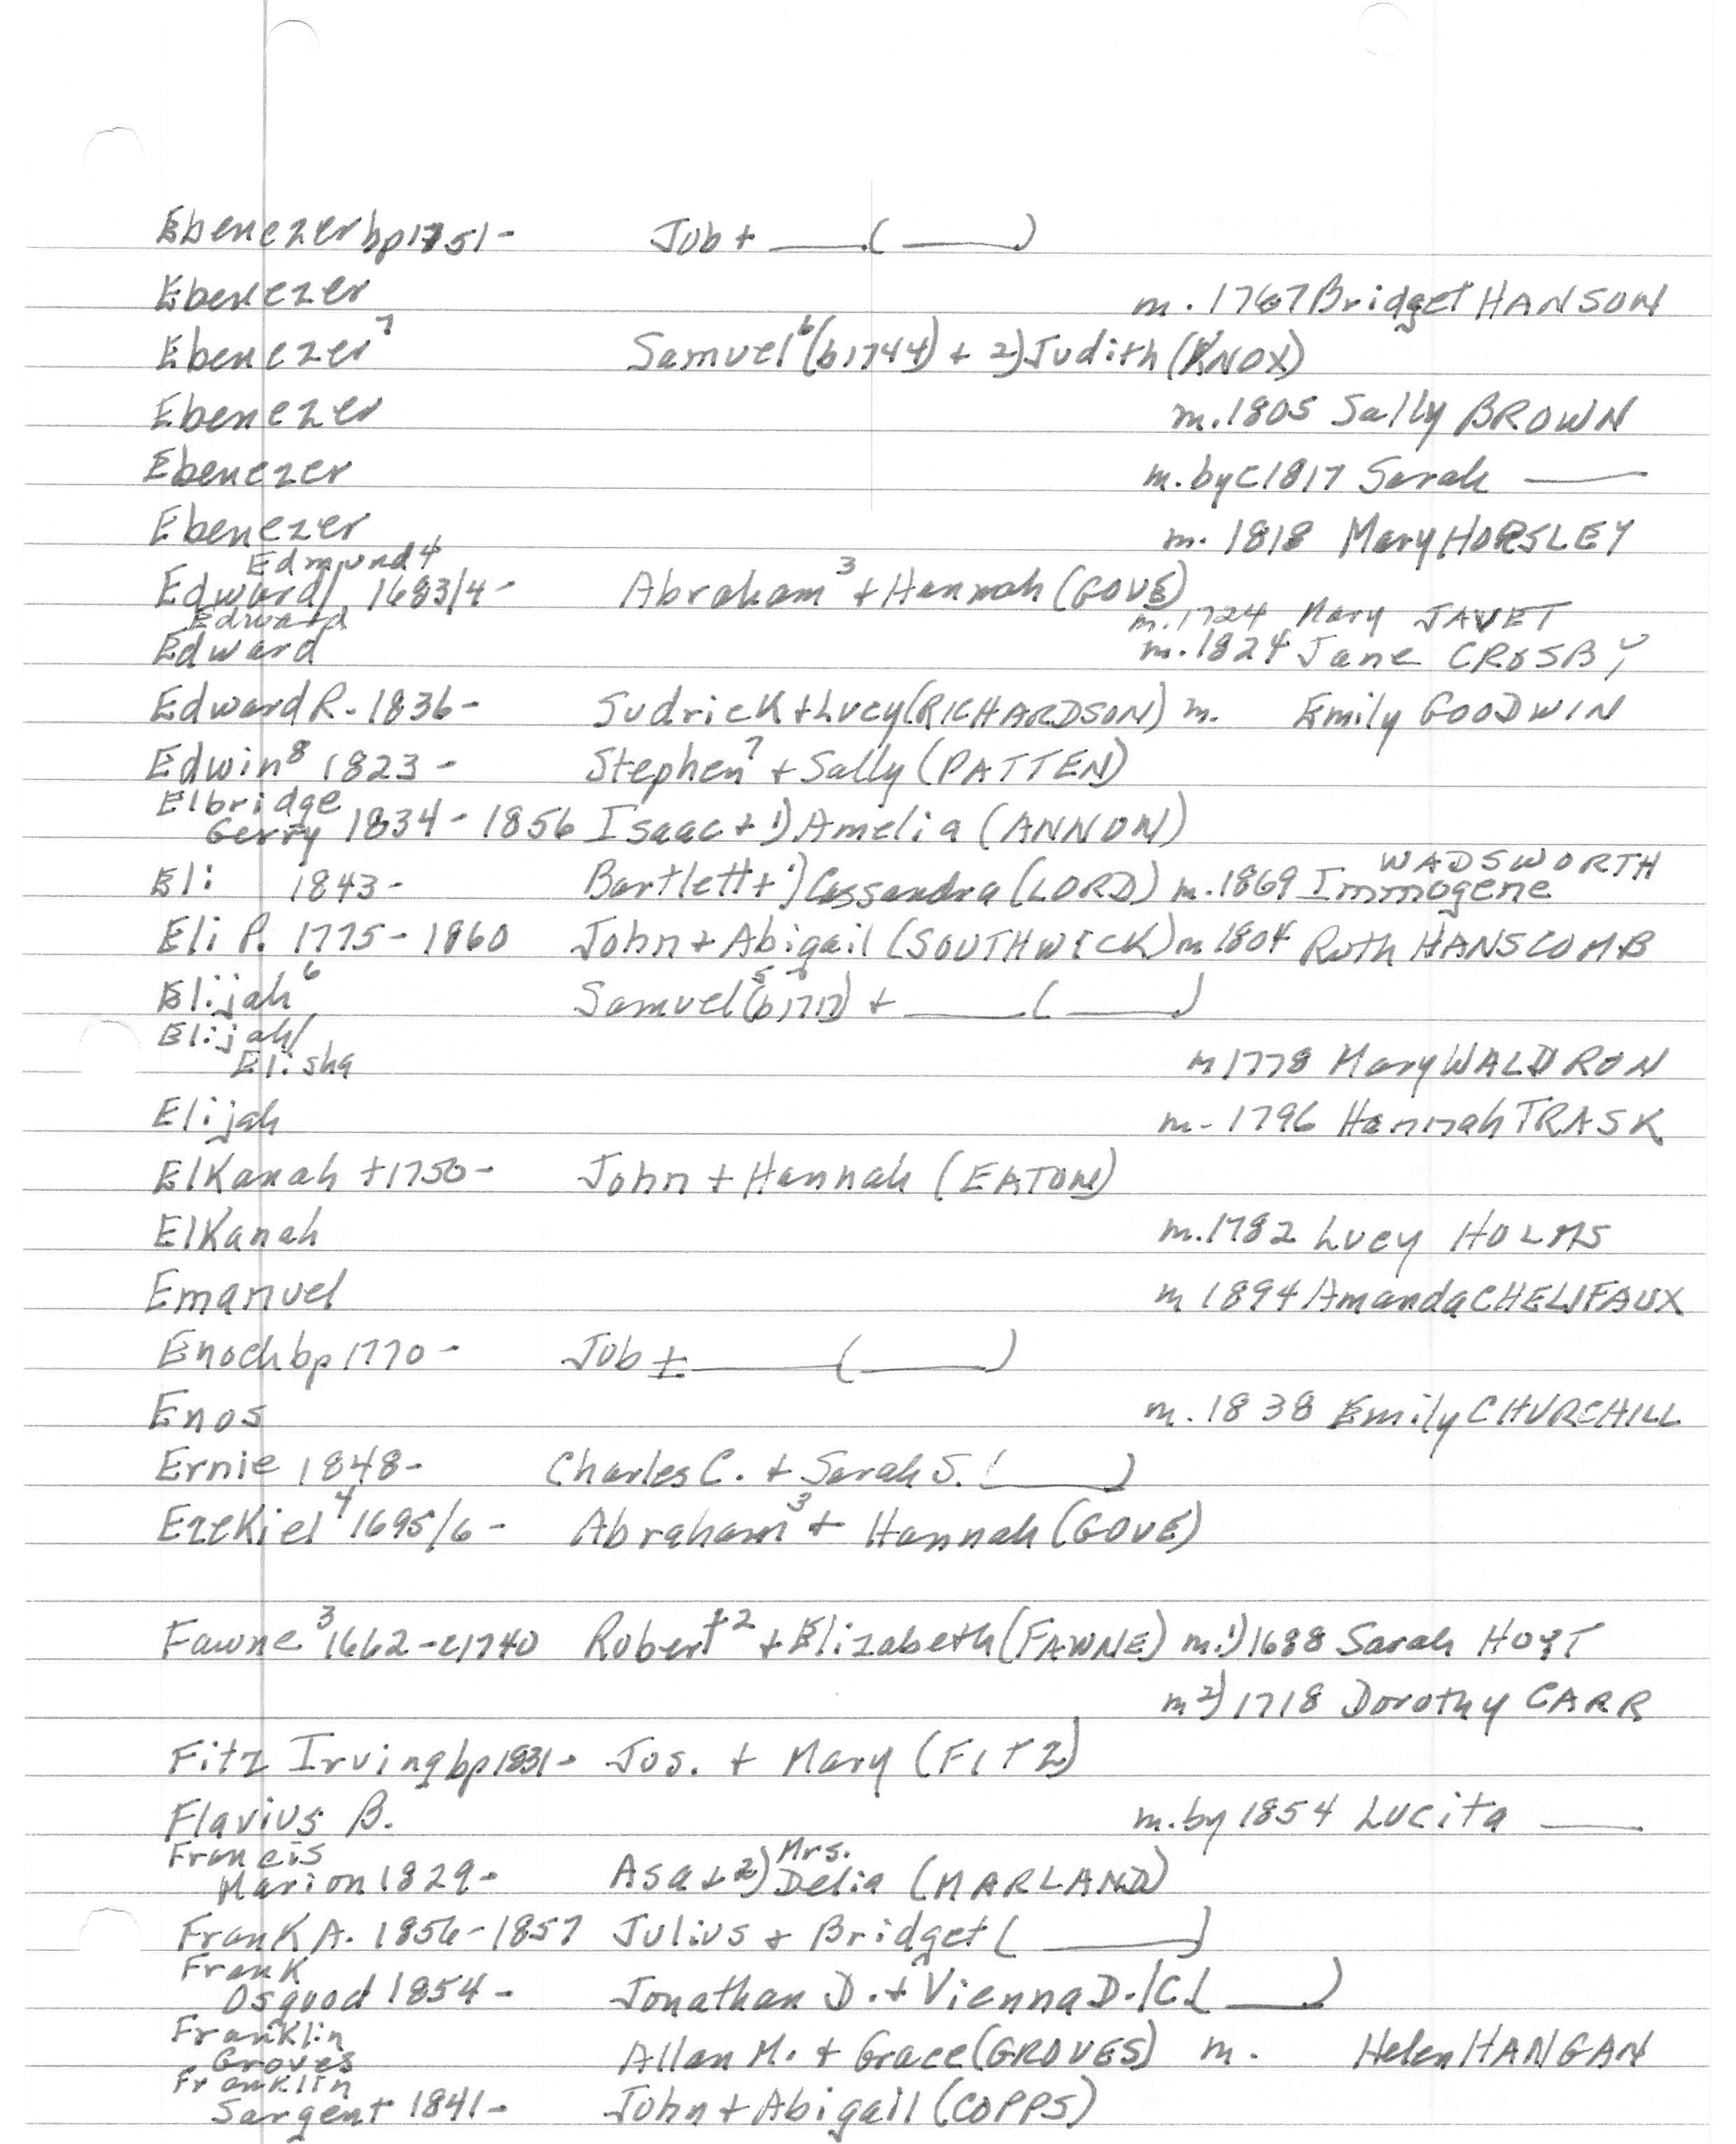 Ebenezer bp1751- Job + ____ ( ____ )
Ebenezer m. 1767 Bridget HANSON
Ebenezer⁷ Samuel⁶(b1744) + 2) Judith (KNOX)
Ebenezer m. 1805 Sally BROWN
Ebenezer m. by c1817 Sarah ____
Ebenezer m. 1818 Mary HORSLEY
Edmund⁴
Edward/ 1683/4- Abraham³ + Hannah (GOVE)
Edward m. 1724 Mary JAVET
Edward m. 1824 Jane CROSBY
Edward R. 1836- Sudrick + Lucy (RICHARDSON) m. Emily GOODWIN
Edwin⁸ 1823- Stephen⁷ + Sally (PATTEN)
Elbridge
Gerry 1834-1856 Isaac + 1) Amelia (ANNON)
WADSWORTH
Eli 1843- Bartlett + 1) Cassandra (LORD) m. 1869 Immogene
Eli P. 1775-1860 John + Abigail (SOUTHWICK) m 1804 Ruth HANSCOMB
Elijah⁶ Samuel⁵(b1717) + ____ ( ____ )
Elijah/
Elisha m 1778 Mary WALDRON
Elijah m- 1796 Hannah TRASK
Elkanah +1750- John + Hannah (EATON)
Elkanah m. 1782 Lucy HOLMS
Emanuel m 1894 Amanda CHELIFAUX
Enoch bp1770- Job + ____ ( ____ )
Enos m. 1838 Emily CHURCHILL
Ernie 1848- Charles C. + Sarah S. ( ____ )
Ezekiel⁴ 1695/6- Abraham³ + Hannah (GOVE)
Fawne³ 1662-c1740 Robert+² + Elizabeth (FAWNE) m1) 1688 Sarah HOYT
m2) 1718 Dorothy CARR
Fitz Irving bp1831- Jos. + Mary (FITZ)
Flavius B. m. by 1854 Lucita ____
Francis Mrs.
Marion 1829- Asa + 2) Delia (MARLAND)
Frank A. 1856-1857 Julius + Bridget ( ____ )
Frank
Osgood 1854- Jonathan D. + Vienna D./C. ( ____ )
Franklin
Groves Allan M. + Grace (GROVES) m. Helen HANGAN
Franklin
Sargent 1841- John + Abigail (COPPS)